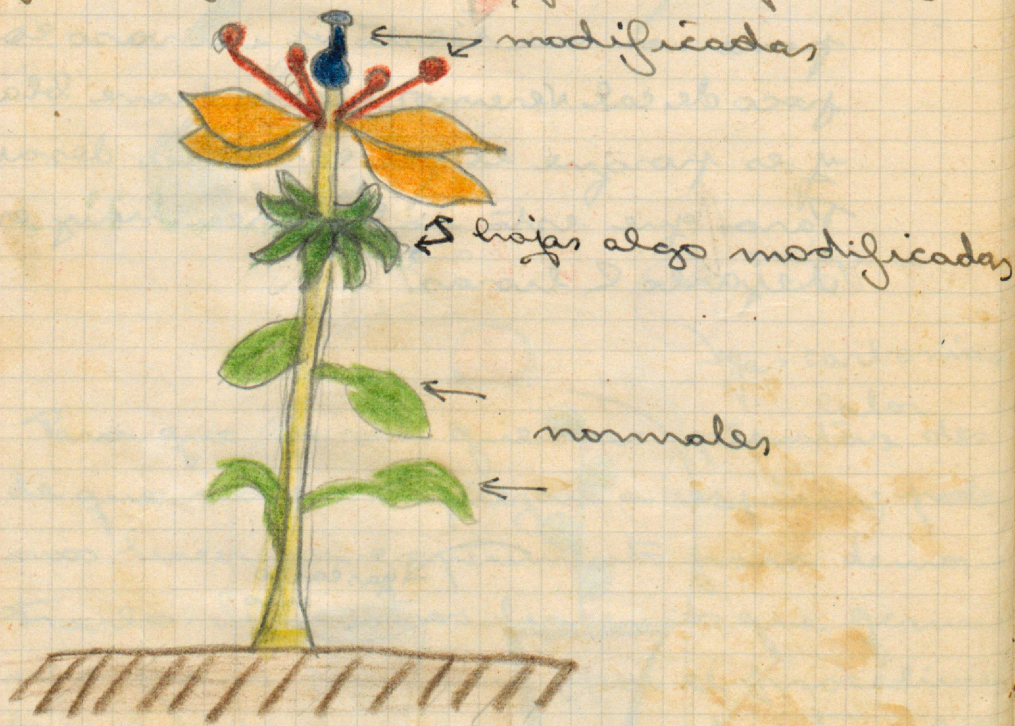 modificadas
hojas algo modificadas
normales